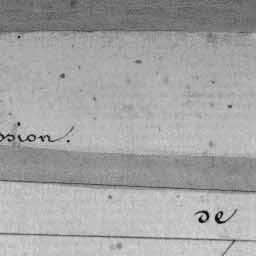 ssion.
de